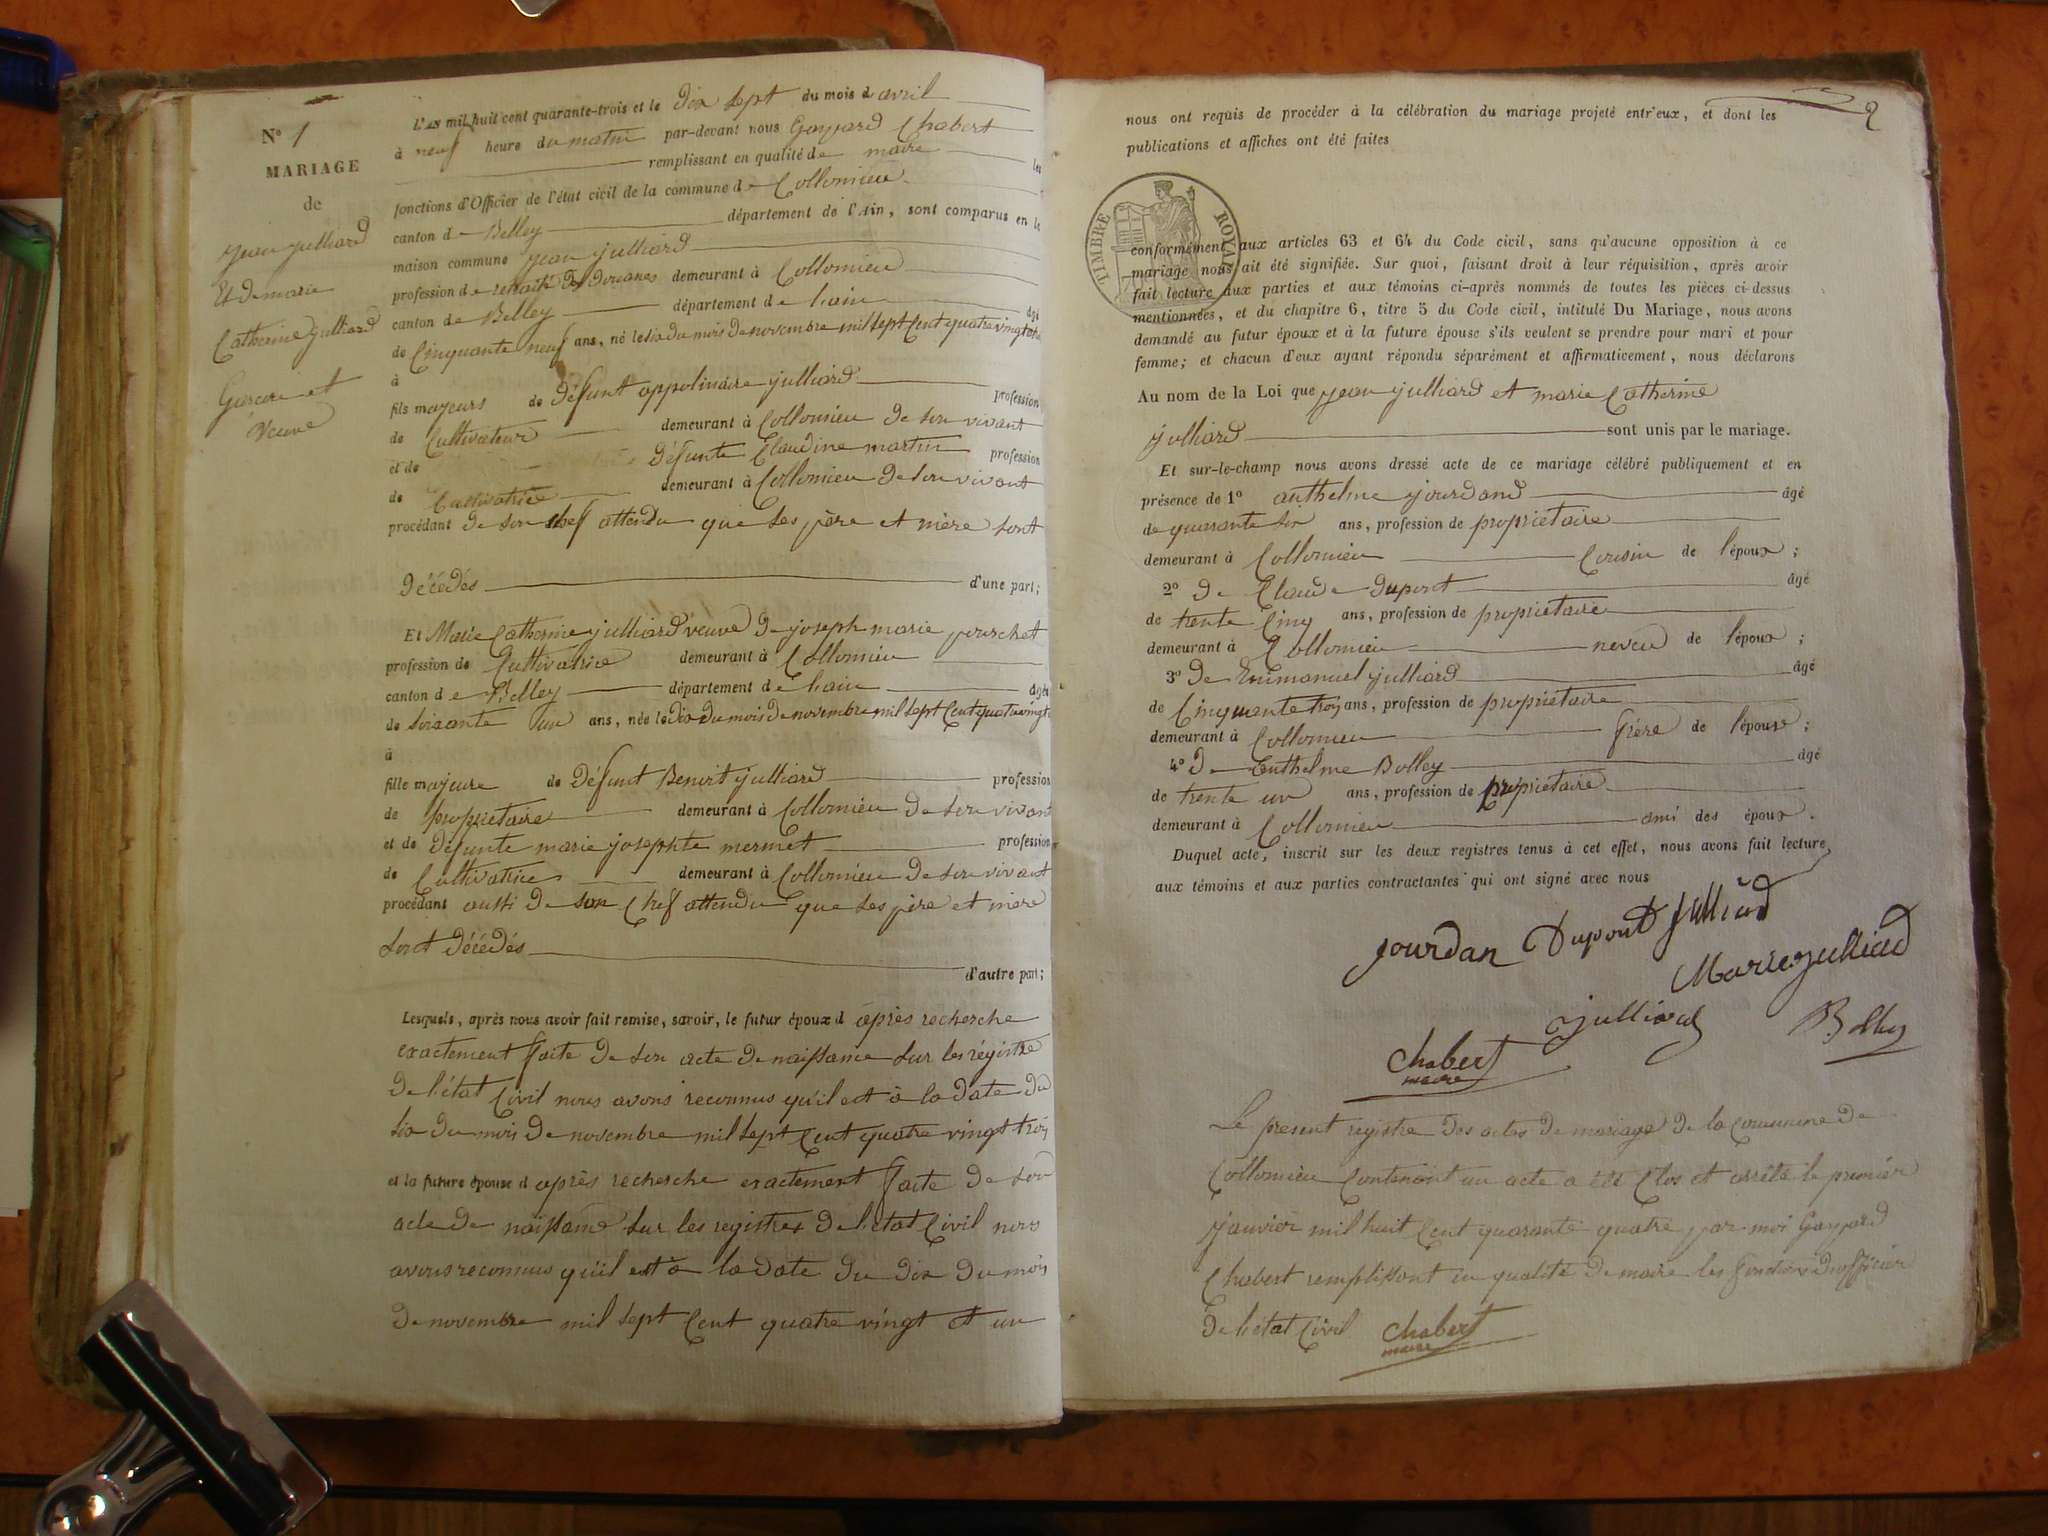 N° 1
MARIAGE
de
jean julliard
Et de marie
Catherine julliard
Garçon et
Veuve
L'an mil huit cent quarante-trois et le Dix sept du mois d avril
à neuf heure du matin par-devant nous Gaspard Chabert
remplissant en qualité de maire les
fonctions d'Officier de l'état civil de la commune de Collomieu
canton de Belley département de l'Ain, sont comparus en la
maison commune jean julliard
profession de retraité des Douanes demeurant à Collomieu
canton de Belley département de Lain âgé
de Cinquante neuf ans, né le six du mois de novembre mil sept Cent quatre vingt
à
fils majeurs de Défunt appolinaire julliard profession
de Cultivateur demeurant à Collomieu de son vivant
et de Défunte Claudine martin profession
de Cultivatrice demeurant à Collomieu de son vivant
procédant de son chef attendu que ses père et mère sont
Décédés d'une part;
Et Marie Catherine julliard veuve de joseph marie pourchet
profession de Cultivatrice demeurant à Collomieu
canton de Belley département de Lain âgée
de soixante un ans, née le dix du mois de novembre mil sept Cent quatre vingt
à
fille majeure de Défunt Benoit julliard profession
de propriétaire demeurant à Collomieu de son vivant
et de Défunte marie josephte mermet profession
de Cultivatrice demeurant à Collomieu de son vivant
procédant aussi de son Chef attendu que ses père et mère
sont Décédés
d'autre part;
Lesquels, après nous avoir fait remise, savoir, le futur époux d après recherche
exactement faite de son acte de naissance sur les régistre
de l'état Civil nous avons reconnus qu'il est à la date du
six du mois de novembre mil sept Cent quatre vingt trois
et la future épouse d après recherche exactement faite de son
acte de naissance sur les registres de l'état Civil nous
avons reconnus qu'il est à la date du dix du mois
de novembre mil sept Cent quatre vingt et un
2
nous ont requis de procéder à la célébration du mariage projeté entr'eux, et dont les
publications et affiches ont été faites
TIMBRE ROYAL
conformément aux articles 63 et 64 du Code civil, sans qu'aucune opposition à ce
mariage nous ait été signifiée. Sur quoi, faisant droit à leur réquisition, après avoir
fait lecture aux parties et aux témoins ci-après nommés de toutes les pièces ci-dessus
mentionnées, et du chapitre 6, titre 5 du Code civil, intitulé Du Mariage, nous avons
demandé au futur époux et à la future épouse s'ils veulent se prendre pour mari et pour
femme; et chacun d'eux ayant répondu séparément et affirmativement, nous déclarons
Au nom de la Loi que jean julliard et marie Catherine
julliard sont unis par le mariage.
Et sur-le-champ nous avons dressé acte de ce mariage célébré publiquement et en
présence de 1° anthelme jourdand âgé
de quarante six ans, profession de propriétaire
demeurant à Collomieu Cousin de l'époux;
2° de Claude Dupont âgé
de trente Cinq ans, profession de propriétaire
demeurant à Collomieu neveu de l'époux;
3° de Emmanuel julliard âgé
de Cinquante trois ans, profession de propriétaire
demeurant à Collomieu frère de l'épouse;
4° de Anthelme Bolley âgé
de trente un ans, profession de propriétaire
demeurant à Collomieu ami des époux.
Duquel acte, inscrit sur les deux registres tenus à cet effet, nous avons fait lecture
aux témoins et aux parties contractantes qui ont signé avec nous
Jourdan Dupont Julliard
Marie julliard
Julliard Bolley
Chabert
maire
Le present registre des actes de mariage de la commune de
Collomieu Contenant un acte a été Clos et arrêté le premier
janvier mil huit Cent quarante quatre par moi Gaspard
Chabert remplissant en qualité de maire les fonctions d'officier
de l'état Civil Chabert
maire